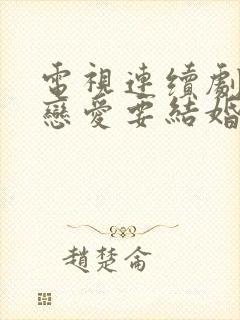 電視連續劇
戀愛要結婚
趙楚侖